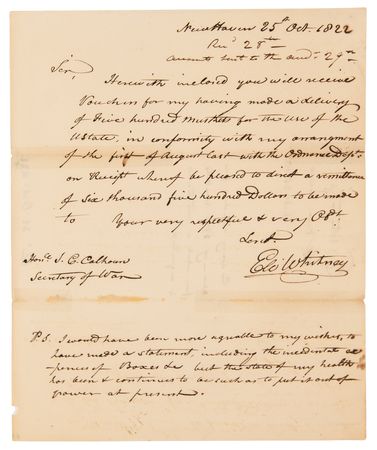 New Haven 25th Oct. 1822
Rec'd 28th
Amount sent to the aud'r 29th
Sir,
Herewith inclosed you will receive
Vouchers for my having made a delivery
of Five hundred Muskets for the Use of the
U State, in conformity with my arrangment
of the first of August last with the Ordnance Dept.
on Receipt whereof be pleased to direct a remittance
of Six thousand five hundred Dollars to be made
to Your very respectful & very Obt.
Servt.
Eli Whitney
Honble J. C. Calhoun
Secretary of War
P.S. I would have been more agreable to my wishes, to
have made a statement, including the incidental ex
-pences of Boxes &c but the state of my health
has been & continues to be such as to put it out of
power at present.